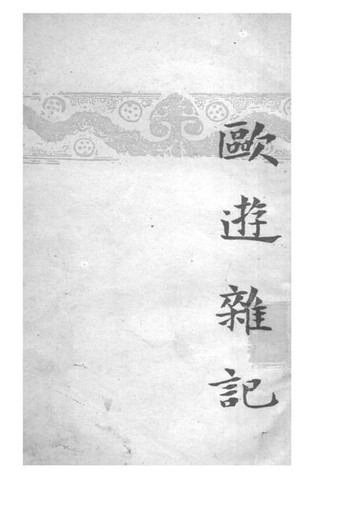 歐遊雜記